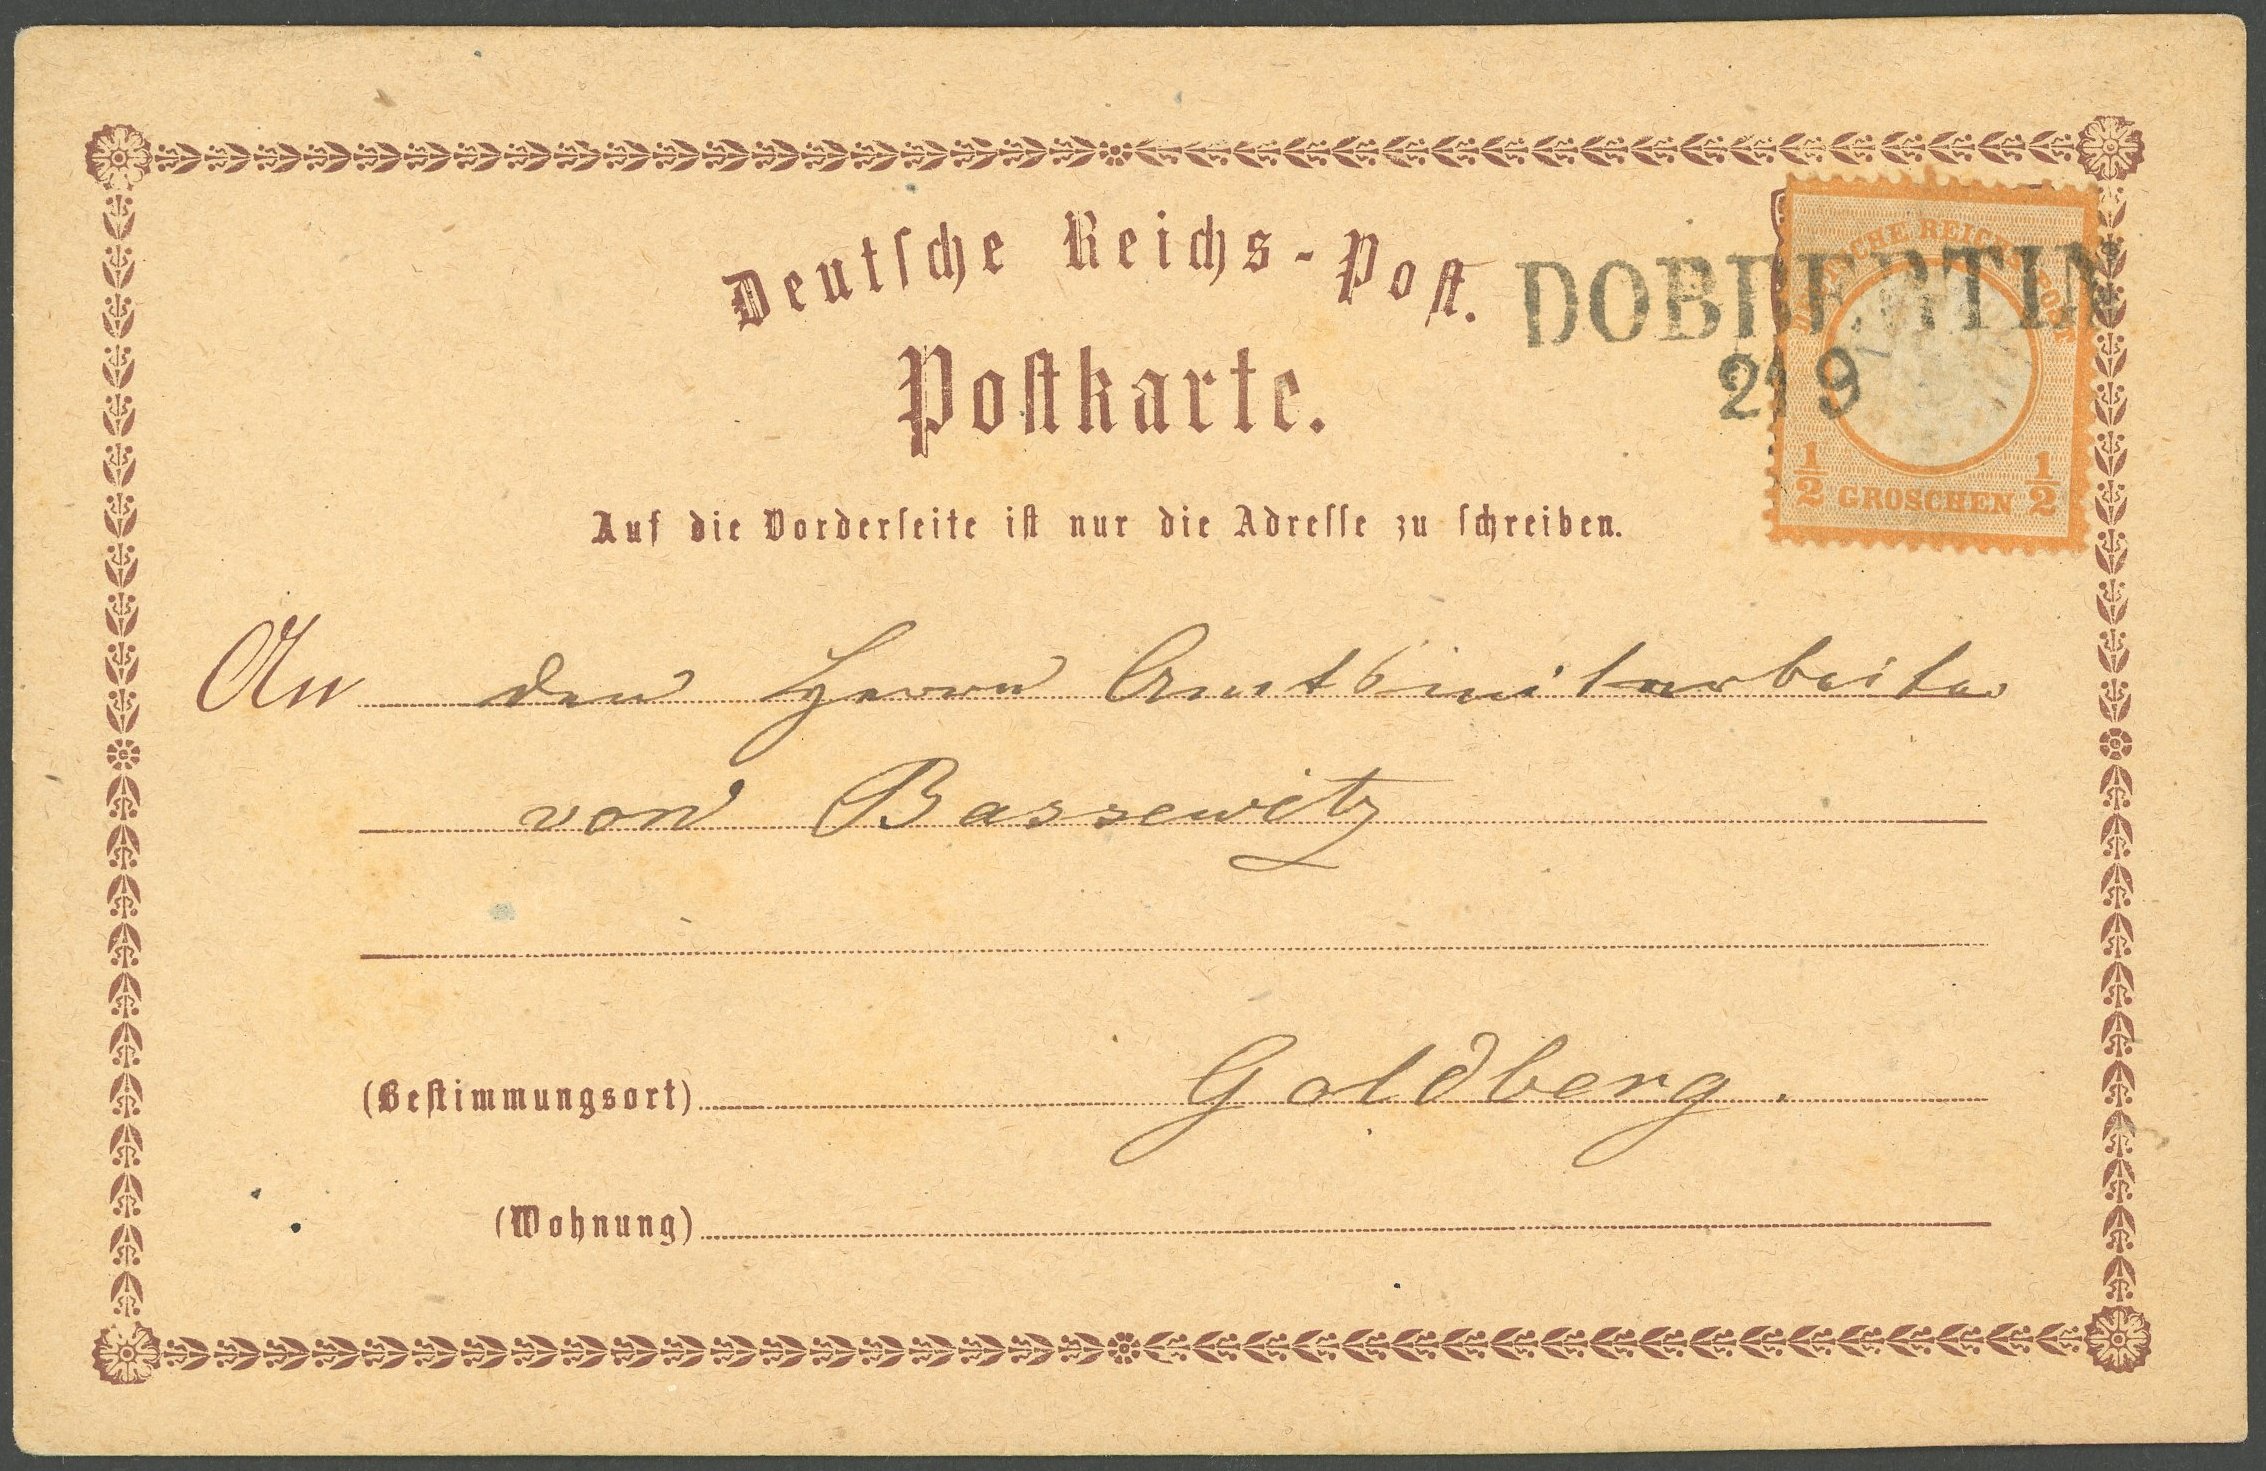 Deutsche Reichs-Post.
DOBBERTIN
Postkarte.
21 9
DEUTSCHE REICHS-POST
1/2 GROSCHEN 1/2
Auf die Vorderseite ist nur die Adresse zu schreiben.
An den Herrn Amtsmitarbeiter
von Bassewitz
(Bestimmungsort) Goldberg.
(Wohnung)